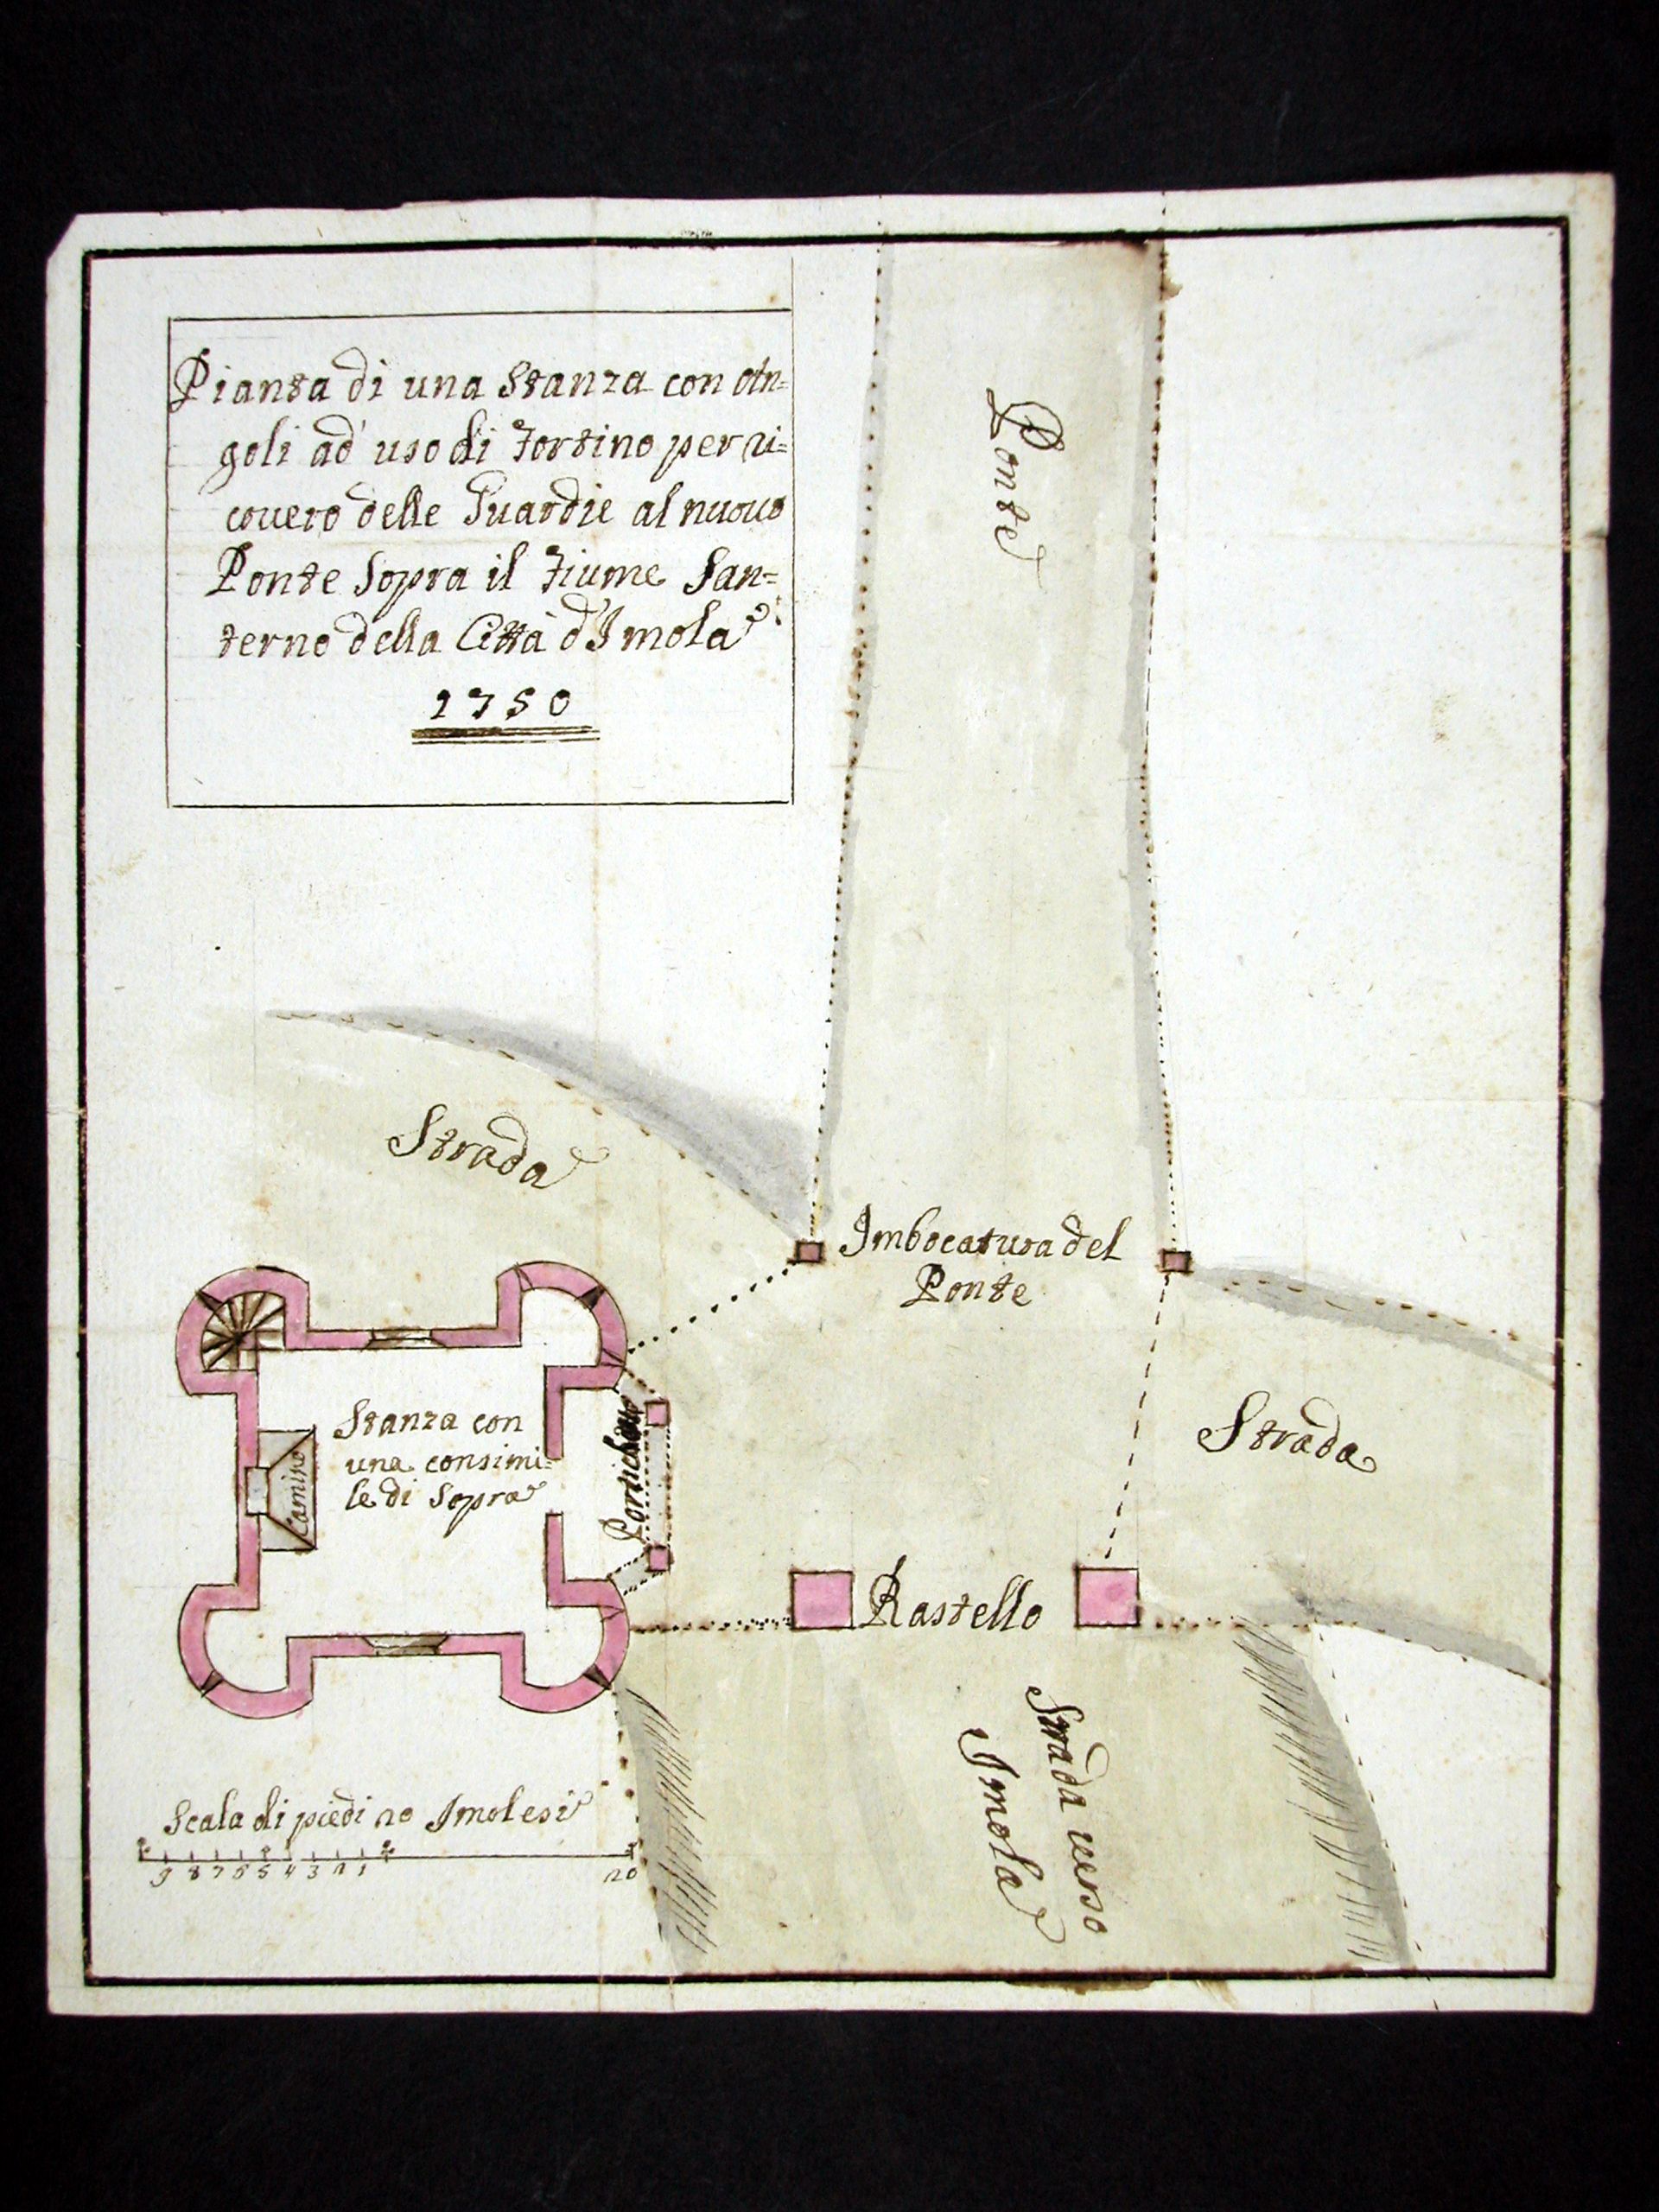 Pianta di una Stanza con An=
goli ad uso di Fortino per ri=
couero delle Guardie al nuouo
Ponte Sopra il Fiume San=
terno della Città d'Imola
1750
Ponte
Strada
Imbocatura del
Ponte
Strada
Stanza con
una consimi=
le di Sopra
Camino
Rastello
Strada uerso
Imola
Scala di piedi 20 Imolesi
9 8 7 6 5 4 3 2 1
20